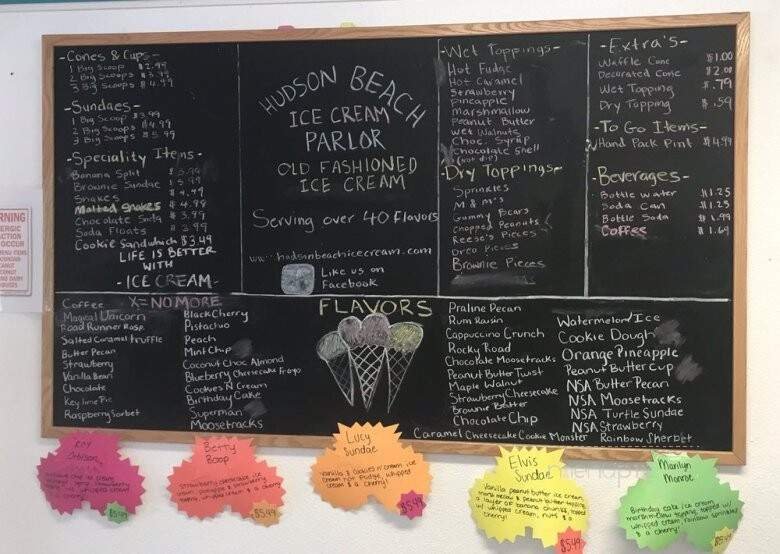 -Cones & Cups-
1 Big Scoop $2.99
2 Big Scoops $3.75
3 Big Scoops $4.99
-Sundaes-
1 Big Scoop $3.99
2 Big Scoops $4.99
3 Big Scoops $5.99
-Speciality Items-
Banana Split
Brownie Sundae
Shakes $4.99
Malted Shakes $4.99
Chocolate Soda $3.99
Soda Floats $3.99
Cookie Sandwich $3.49
LIFE IS BETTER
WITH
-ICE CREAM-
HUDSON BEACH
ICE CREAM
PARLOR
OLD FASHIONED
ICE CREAM
Serving over 40 flavors
www.hudsonbeachicecream.com
Like us on
Facebook
-Wet Toppings-
Hot Fudge
Hot Caramel
Strawberry
Pineapple
Marshmallow
Peanut Butter
Wet Walnuts
Choc. Syrup
Chocolate Shell
(hot dip)
-Dry Toppings-
Sprinkles
M & M's
Gummy Bears
Chopped Peanuts
Reese's Pieces
Oreo Pieces
Brownie Pieces
-Extra's-
Waffle Cone $1.00
Decorated Cone $2.00
Wet Topping $.79
Dry Topping $.59
-To Go Items-
Hand Pack Pint $4.99
-Beverages-
Bottle Water $1.25
Soda Can $1.25
Bottle Soda $1.99
Coffee $1.69
FLAVORS
X=NO MORE
Coffee
Magical Unicorn
Road Runner Rasp.
Salted Caramel truffle
Butter Pecan
Strawberry
Vanilla Bean
Chocolate
Key lime Pie
Raspberry Sorbet
Black Cherry
Pistachio
Peach
Mint Chip
Coconut Choc Almond
Blueberry Cheesecake Froyo
Cookies N Cream
Birthday Cake
Superman
Moosetracks
Praline Pecan
Rum Raisin
Cappuccino Crunch
Rocky Road
Chocolate Moosetracks
Peanut Butter Twist
Maple Walnut
Strawberry Cheesecake
Brownie Batter
Chocolate Chip
Caramel Cheesecake Cookie Monster
Watermelon Ice
Cookie Dough
Orange Pineapple
Peanut Butter Cup
NSA Butter Pecan
NSA Moosetracks
NSA Turtle Sundae
NSA Strawberry
Rainbow Sherbet
Roy
Orbison
whipped cream
& a cherry!
$5.49
Betty
Boop
Strawberry cheesecake ice
cream, pineapple & strawberry
topping, whipped cream & a cherry
$5.49
Lucy
Sundae
Vanilla & Cookies n' cream ice
cream hot fudge, whipped
cream & a cherry!
$5.49
Elvis
Sundae
Vanilla peanut butter ice cream,
marshmallow & peanut butter topping,
a layer of banana chunks, topped
w/ whipped cream, nuts & a
cherry!
$5.49
Marilyn
Monroe
Birthday cake ice cream,
marshmallow topping, topped w/
whipped cream, rainbow sprinkles
& a cherry!
$5.49